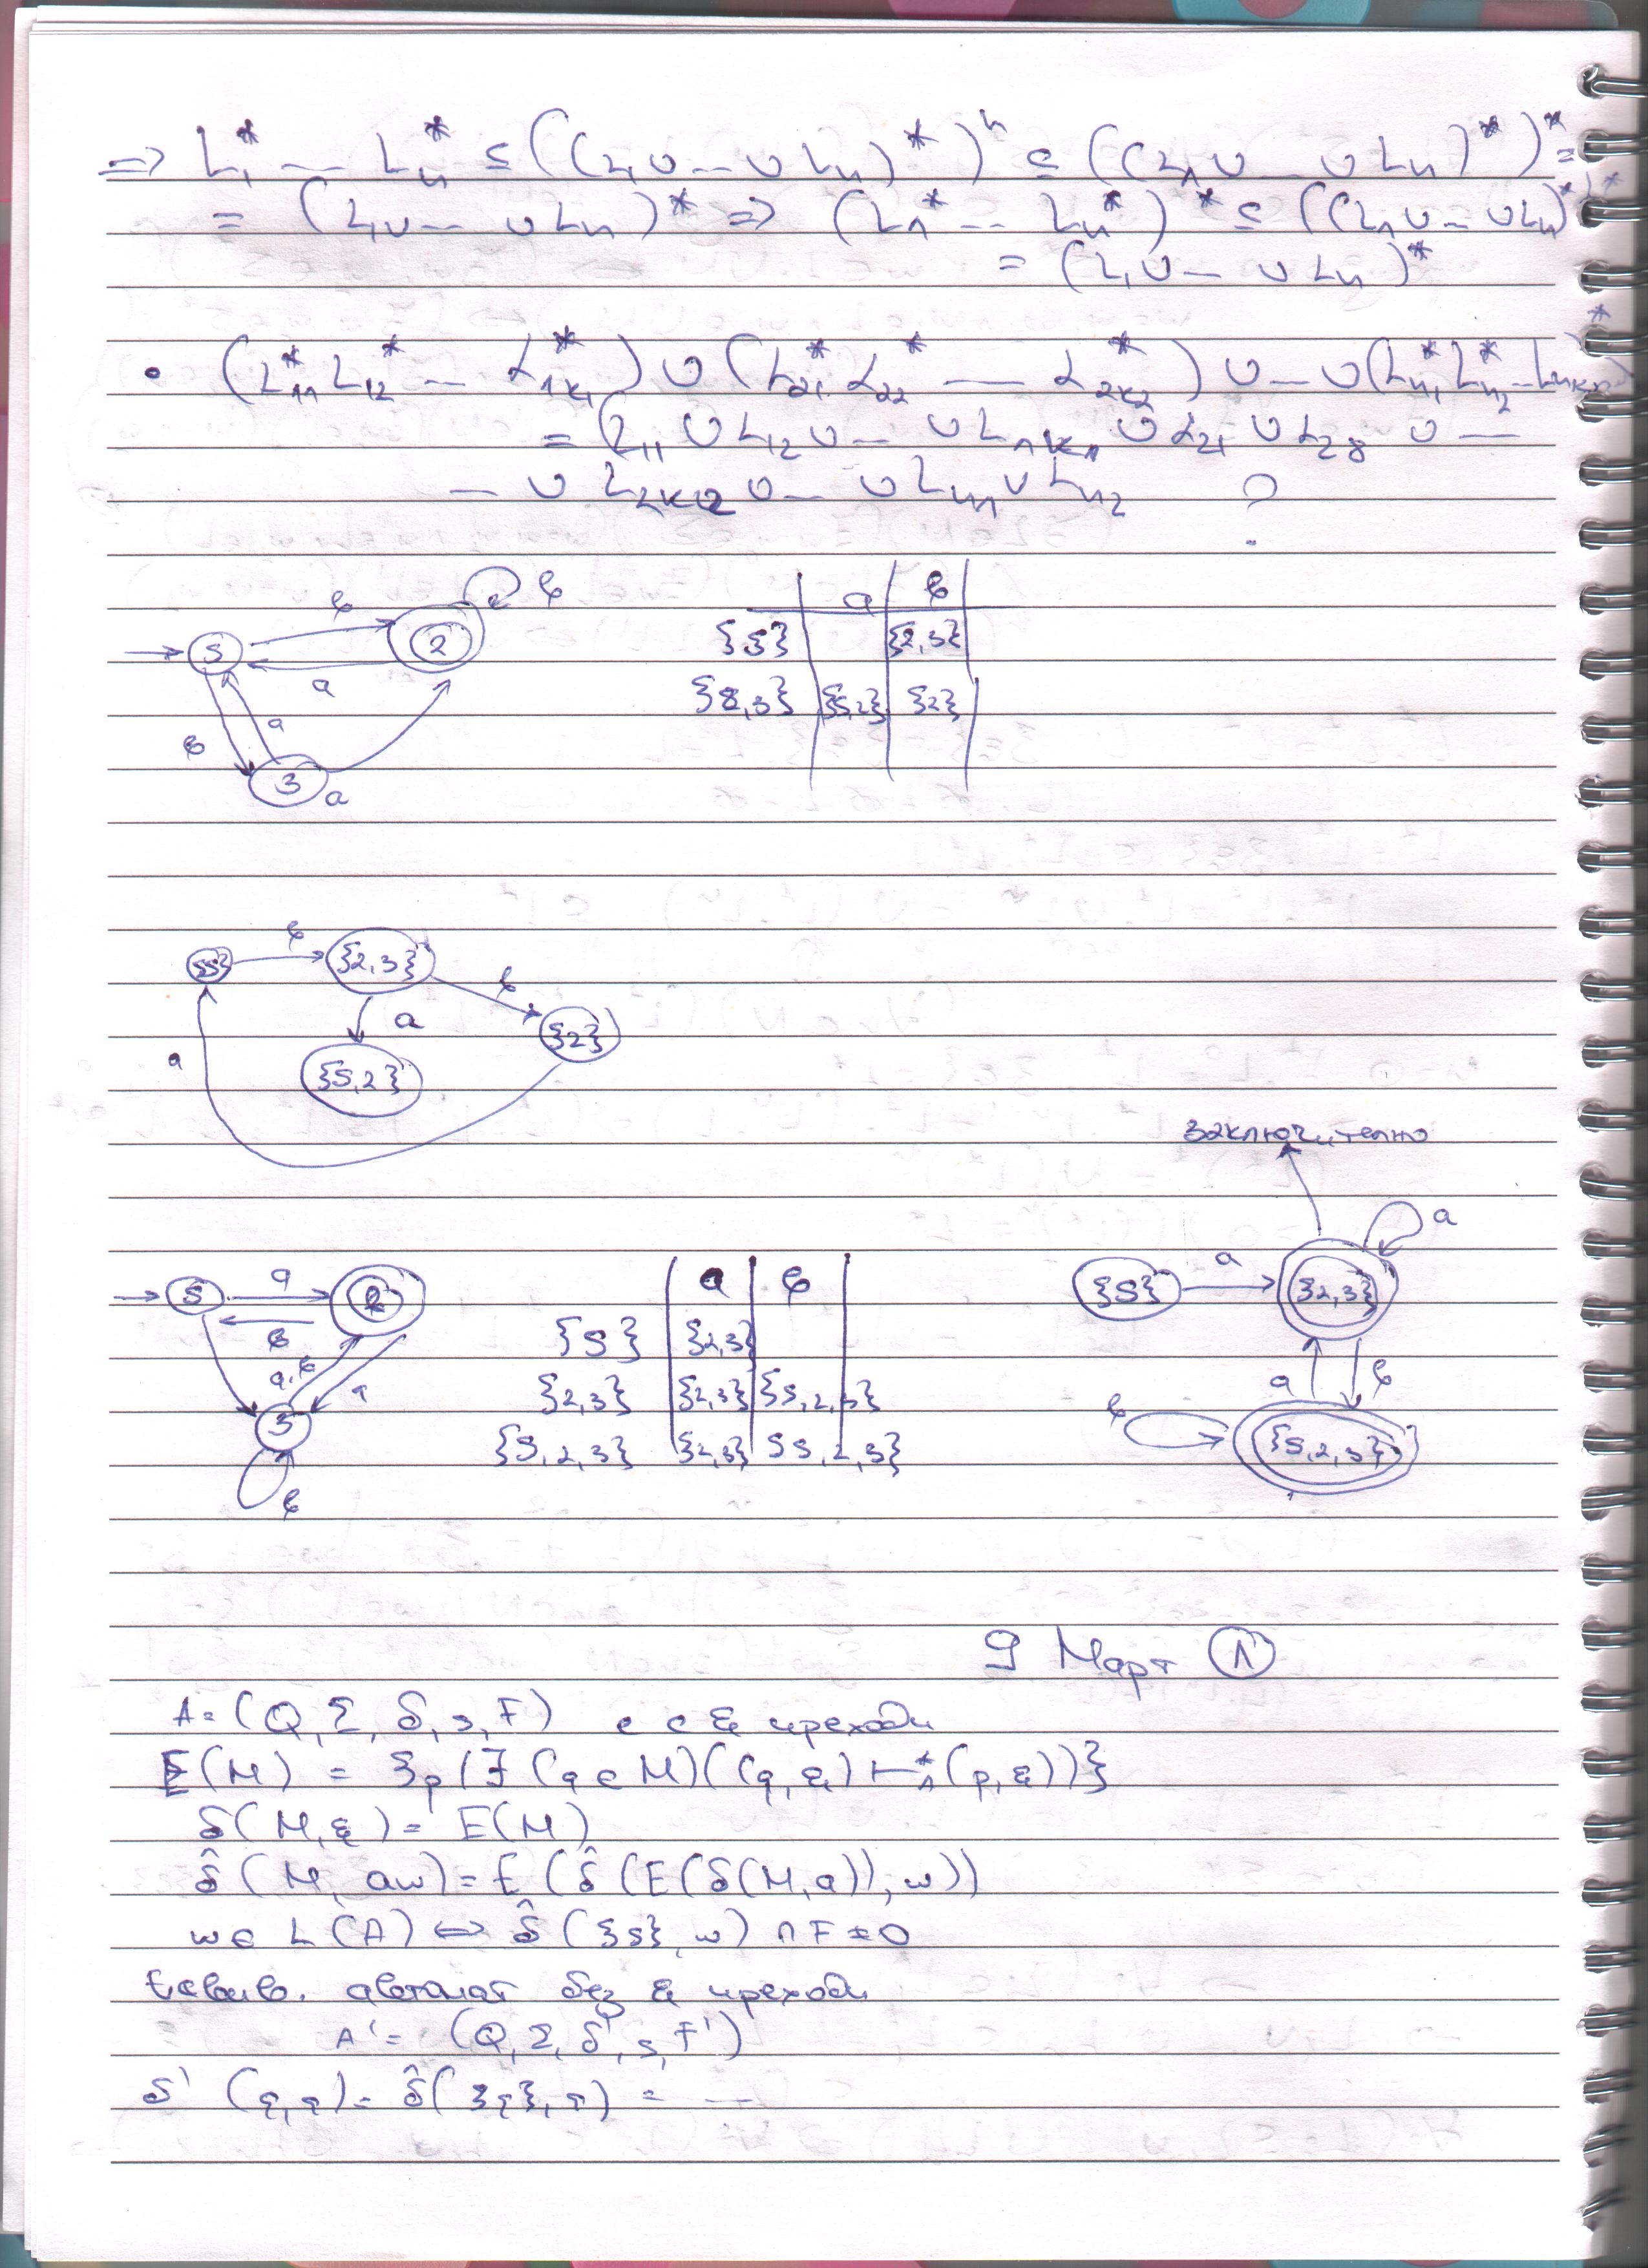 ⇒ L₁* — Lₙ* ⊆ ((L₁∪—∪Lₙ)*)ⁿ ⊆ ((L₁∪—∪Lₙ)*)* =
= (L₁∪—∪Lₙ)* ⇒ (L₁* -- Lₙ*)* ⊆ ((L₁∪—∪Lₙ)*)*
= (L₁∪—∪Lₙ)*
• (L₁₁* L₁₂* — L₁ₖ₁*) ∪ (L₂₁* L₂₂* — L₂ₖ₂*) ∪—∪ (Lₙ₁* Lₙ₂* — Lₙₖₙ*)*
= (L₁₁ ∪ L₁₂ ∪— ∪ L₁ₖ₁ ∪ L₂₁ ∪ L₂₂ ∪ —
— ∪ L₂ₖ₂ ∪— ∪ Lₙ₁ ∪ Lₙ₂ ?
в в
s 2 a
a в 3 a
a в
{s} {2,3}
{2,3} {s,2} {2}
{s} в {2,3} в {2}
a a {s,2}
заключ. тепно
s a 2
в
a,в a
3
в
a в
{s} {2,3}
{2,3} {2,3} {s,2,3}
{s,2,3} {2,3} {s,2,3}
{s} a {2,3} a
a в
в {s,2,3}
9 Март Л
A=(Q,Σ,δ,s,F) е с ε преходи
E(M) = {p | ∃(q∈M)((q,ε) ⊢*_A (p,ε))}
δ̂(M,ε) = E(M)
δ̂(M,aw) = E(δ̂(E(δ(M,a)),w))
w∈L(A) ⇔ δ̂({s},w) ∩ F ≠ 0
Еквив. автомат без ε преходи
A' = (Q,Σ,δ',s,F')
δ'(q,a) = δ̂({q},a) = —